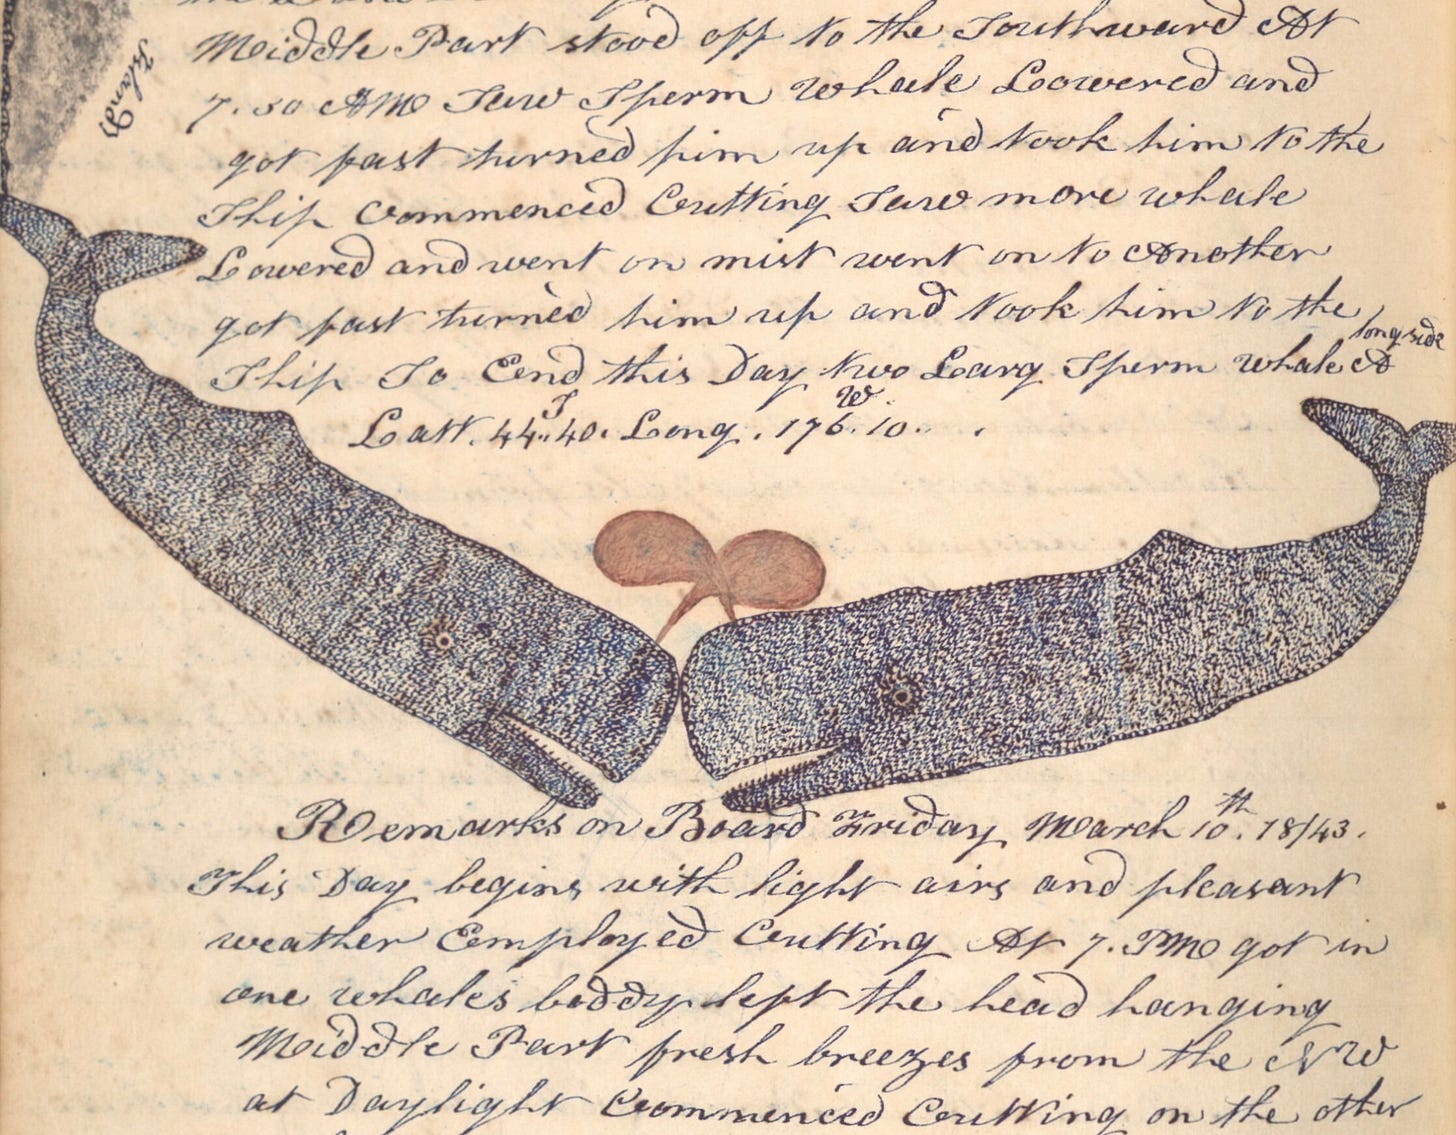 Middle Part stood off to the Southward At
7.30 AM Saw Sperm Whale Lowered and
got fast turned him up and took him to the
Ship Commenced Cutting Saw more whale
Lowered and went on mist went on to Another
got fast turned him up and took him to the
Ship So End this Day two Larg Sperm whale A long side
Latt. 44..40. S Long. 176.10.. W
Island
Remarks on Board Friday March 10th. 1843.
This Day begins with light airs and pleasant
weather Employed Cutting At 7. PM got in
one whales boddy left the head hanging
Middle Part fresh breezes from the NW
at Daylight Commenced Cutting on the other